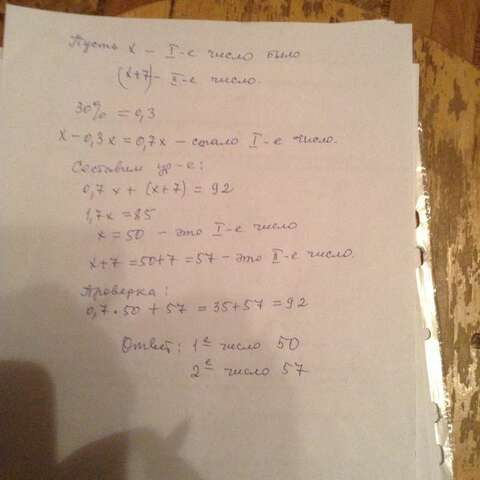 Пусть x – I-е число было
(x+7) – II-е число.
30% = 0,3
x – 0,3x = 0,7x – стало I-е число.
Составим ур-е:
0,7x + (x+7) = 92
1,7x = 85
x = 50 – это I-е число
x+7 = 50+7 = 57 – это II-е число.
Проверка:
0,7 • 50 + 57 = 35 + 57 = 92
Ответ: 1е число 50
2е число 57